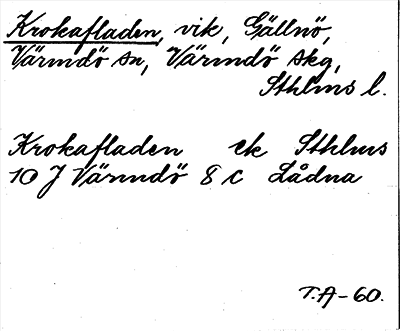 Krokafladen, vik, Gällnö,
Värmdö sn, Värmdö skg,
Sthlms l.
Krokafladen ek Sthlms
10 J Värmdö 8 c Lådna
T.A-60.